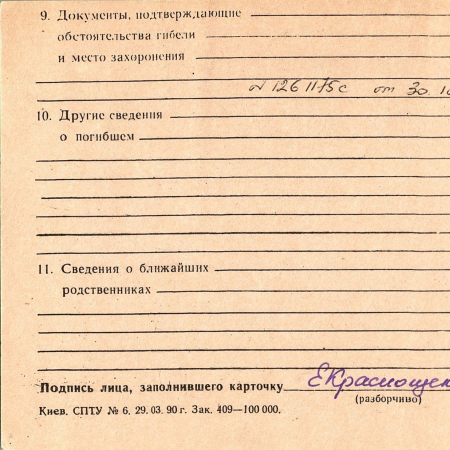 9. Документы, подтверждающие
обстоятельства гибели
и место захоронения
N 1261175с от 30.10
10. Другие сведения
о погибшем
11. Сведения о ближайших
родственниках
Подпись лица, заполнившего карточку ЕКраснощек
(разборчиво)
Киев. СПТУ № 6. 29. 03. 90 г. Зак. 409—100 000.